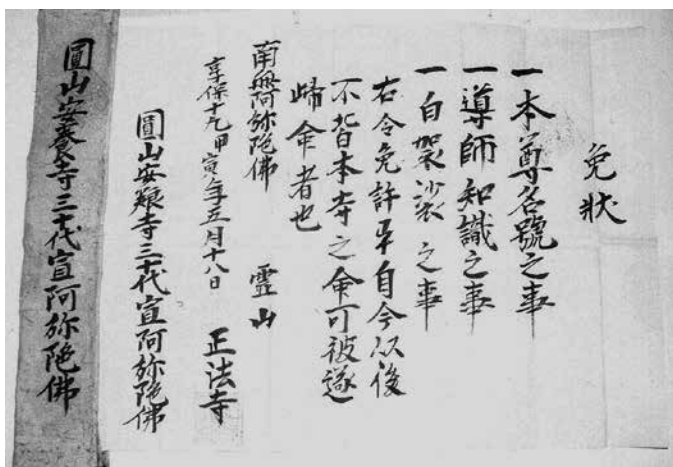 免狀
一本尊名號之事
一導師知識之事
一白袈裟之事
右令免許平自今以後
不背本寺之命可被遂
歸命者也
南無阿弥陀佛 霊山
享保十九甲寅年五月十八日 正法寺
圓山安養寺三十代宣阿弥陀佛
圓山安養寺三十代宣阿弥陀佛